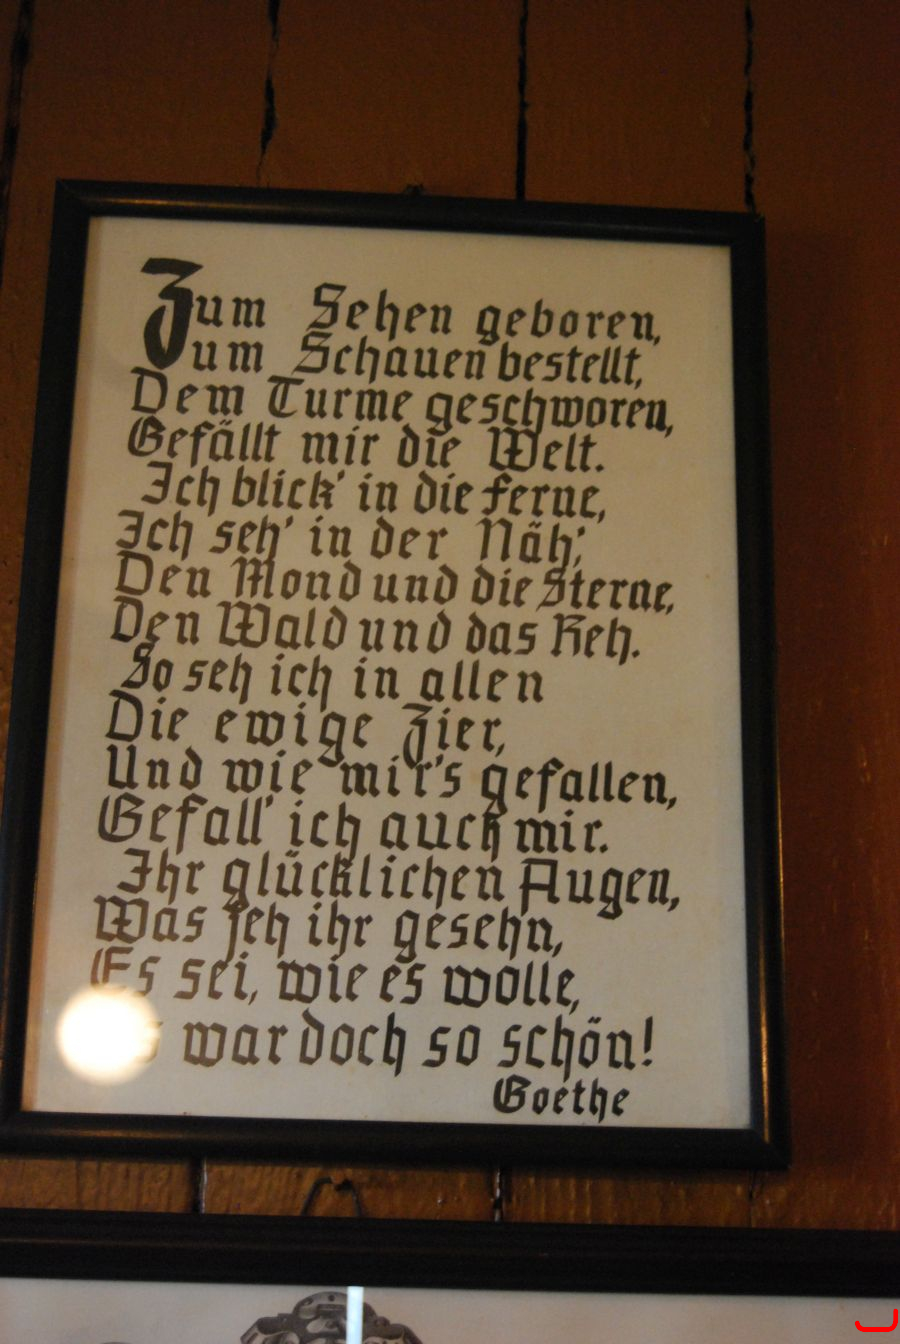 Zum Sehen geboren,
Zum Schauen bestellt,
Dem Turme geschworen,
Gefällt mir die Welt.
Ich blick' in die Ferne,
Ich seh' in der Näh',
Den Mond und die Sterne,
Den Wald und das Reh.
So seh ich in allen
Die ewige Zier,
Und wie mir's gefallen,
Gefall' ich auch mir.
Ihr glücklichen Augen,
Was jeh ihr gesehn,
Es sei, wie es wolle,
war doch so schön!
Goethe